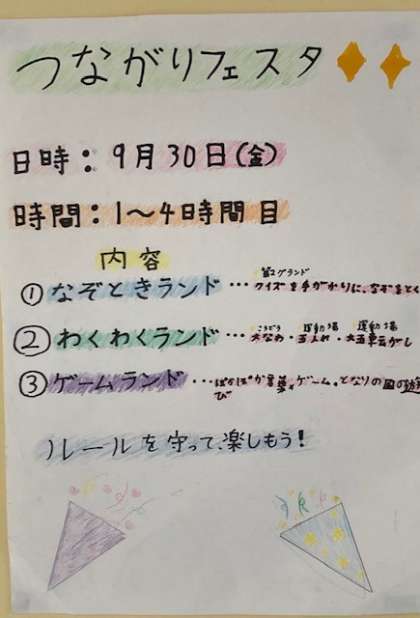 つながりフェスタ
日時：9月30日(金)
時間：1〜4時間目
内容
①なぞときランド…クイズを手がかりに、なぞをとく
②わくわくランド…大なわ・玉入れ・大玉転がし
③ゲームランド…ゲーム。となりの国の遊び
ルールを守って、楽しもう！